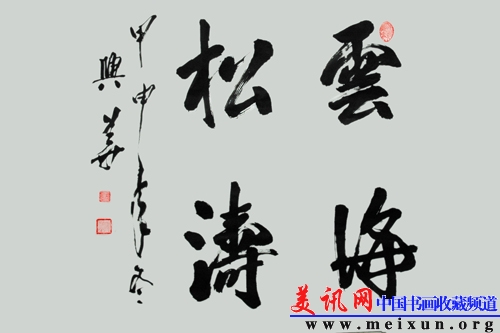 雲海
松濤
甲申年冬
興華
美讯网
中国书画收藏频道
www.meixun.org